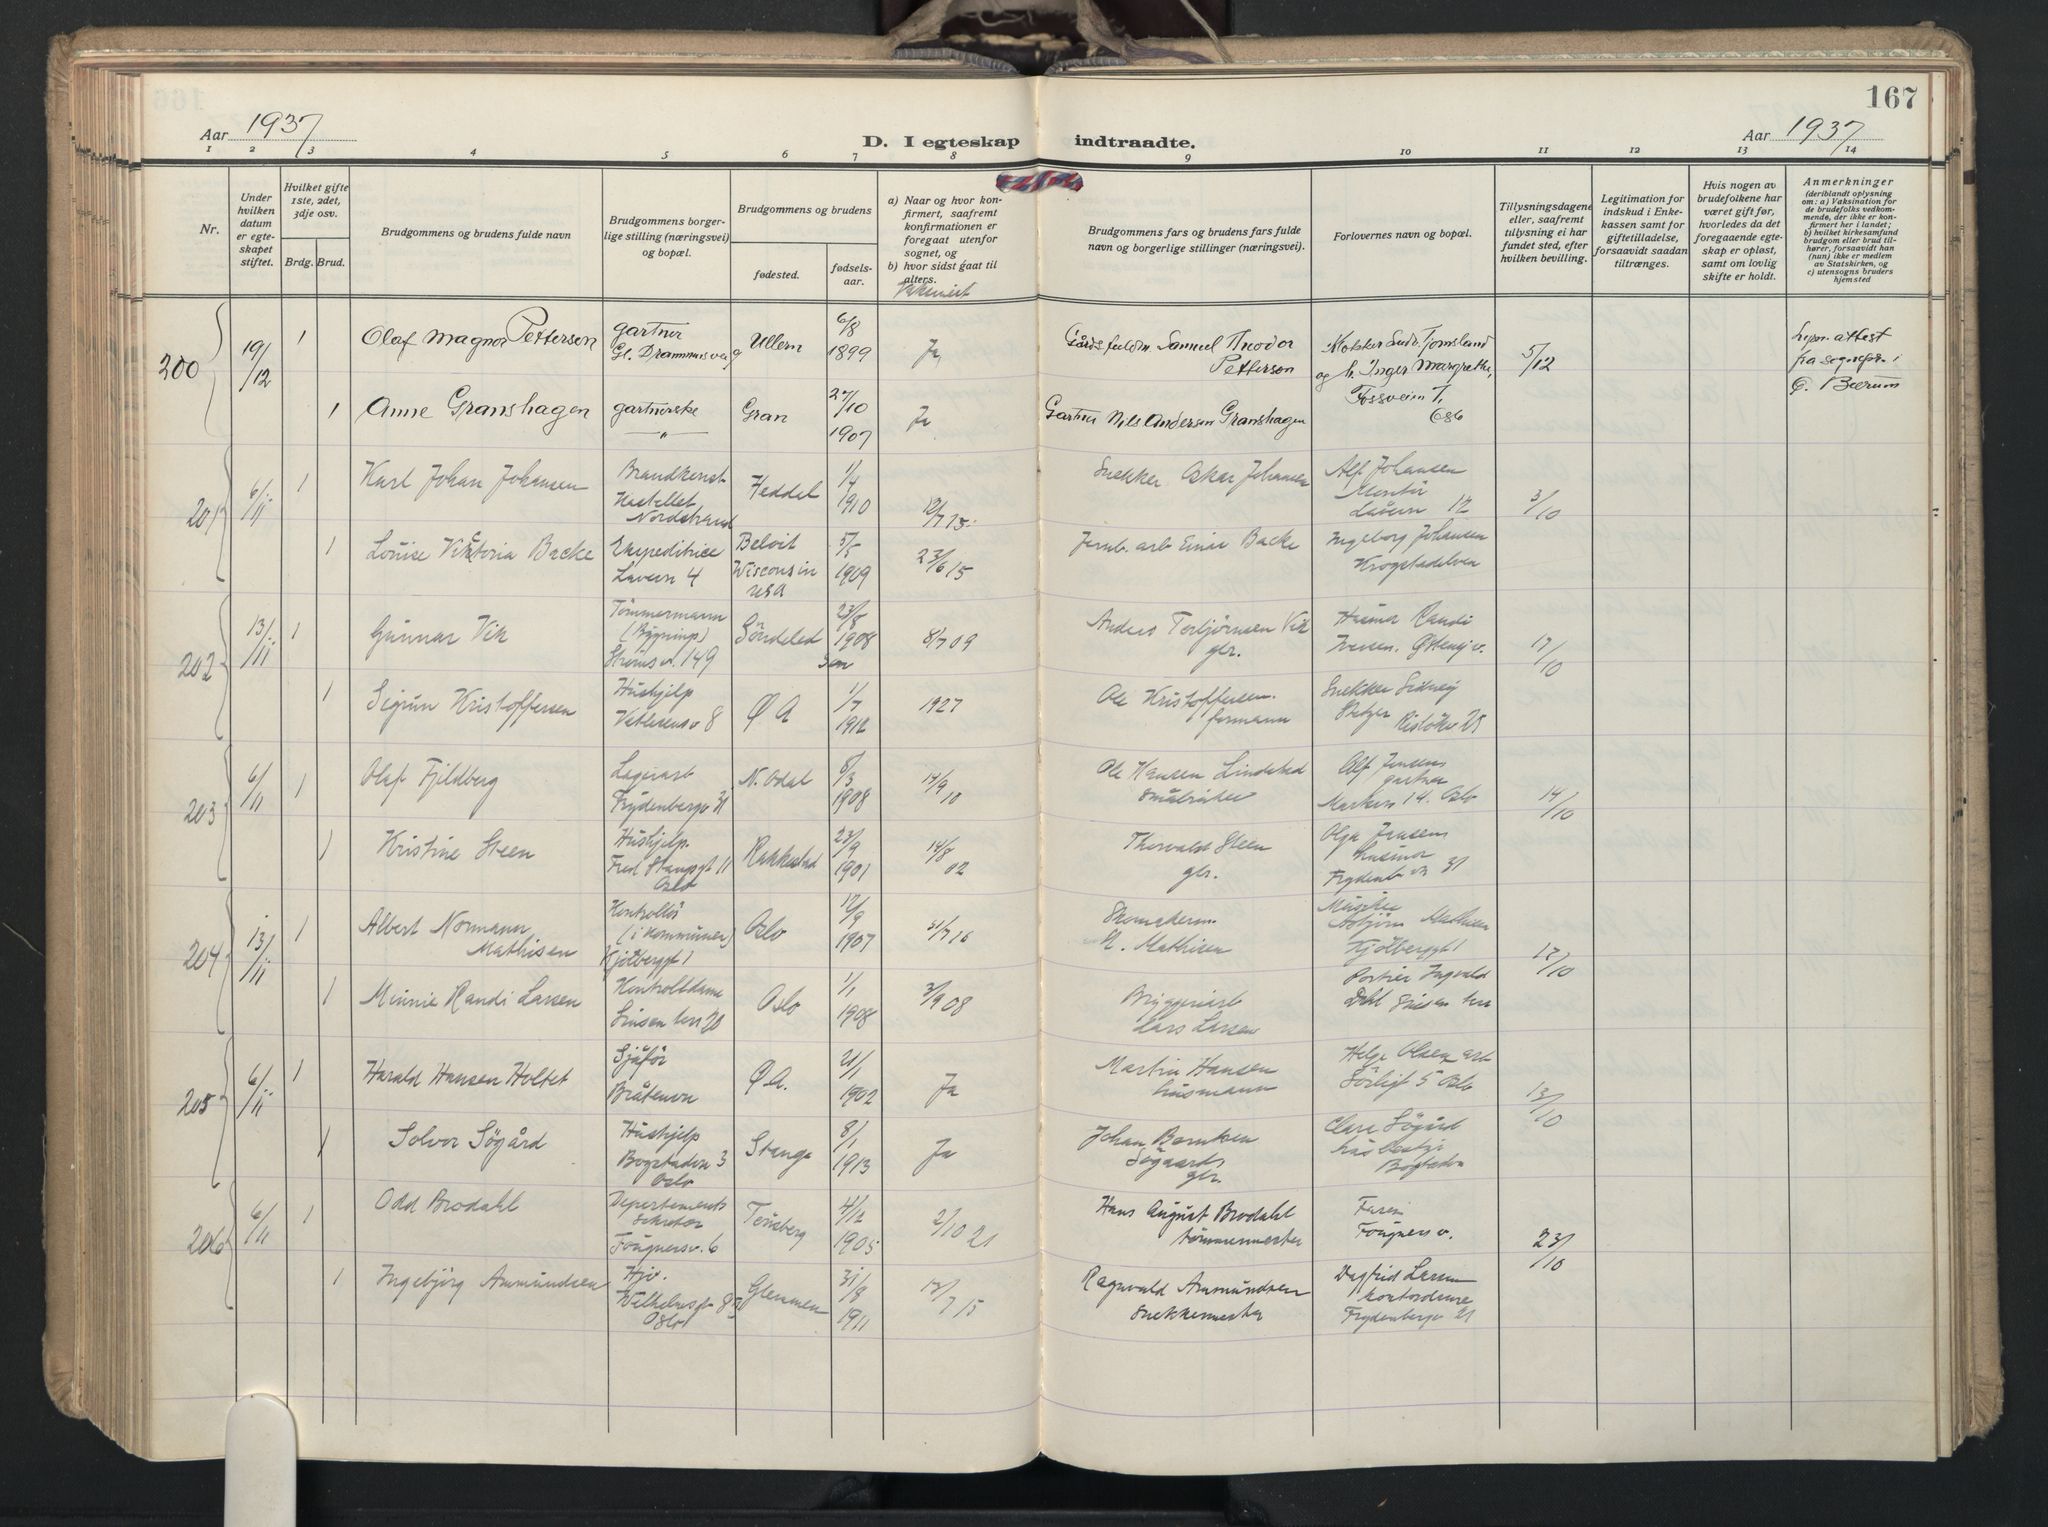 167
Aar 1937
D. I egteskap indtraadte.
Aar 1937
1 2 3 4 5 6 7 8 9 10 11 12 13 14
Nr.
Under hvilken datum er egteskapet stiftet.
Hvilket gifte 1ste, 2det, 3dje osv.
Brdg. Brud.
Brudgommens og brudens fulde navn
Brudgommens borgerlige stilling (næringsvei) og bopæl.
Brudgommens og brudens
fødested.
fødselsaar.
a) Naar og hvor konfirmert, saafremt konfirmationen er foregaat utenfor sognet, og
b) hvor sidst gaat til alters.
Vaksinert
Brudgommens fars og brudens fars fulde navn og borgerlige stillinger (næringsvei).
Forlovernes navn og bopæl.
Tillysningsdagene eller, saafremt tillysning ei har fundet sted, efter hvilken bevilling.
Legitimation for indskud i Enkekassen samt for giftetilladelse, forsaavidt saadan tiltrænges.
Hvis nogen av brudefolkene har været gift før, hvorledes da det foregaaende egteskap er opløst, samt om lovlig skifte er holdt.
Anmerkninger
(deriblandt oplysning om: a) Vaksination for de brudefolks vedkommende, der ikke er konfirmert her i landet; b) hvilket kirkesamfund brudgom eller brud tilhører, forsaavidt han (nun) ikke er medlem av Statskirken, og c) utensogns bruders hjemsted
200 19/12 1 Olaf Magnor Petterson gartner Gl. Drammensvei 9 Ullern 6/8 1899 Ja Samuel Theodor Petterson 5/12 attest fra sogne i Ø. Bærum
1 Anne Granshagen gartnerske " Gran 27/10 1907 Ja Gartner Nils Anderson Granshagen
201 6/11 1 Karl Johan Johansen Kastellet Nordstrand Heddal 1/4 1910 12/7 15 Snekker Oskar Johansen Alf Johansen Montør 12 3/10
1 Louise Viktoria Backe Ekspeditrice 4 Beloit Wisconsin USA 5/5 1909 23/6 15 Jernb. arb Einar Backe Ingeborg Johansen Krogstadelven
202 13/11 1 Gunnar Vik Tömmermann Ströms v. 149 Söndeled 23/8 1908 8/7 09 Anders Torbjörnsen Vik gbr. Husmor Randi 17/10
1 Sigrun Kristoffersen Hushjelp Vetlesens v 8 Ø A 1/7 1912 1927 Ole Kristoffersen formann Snekker Sidney
203 6/11 1 Olaf Fjeldberg Lagerarb Frydenbergv 31 N. Odal 5/3 1908 14/9 10 Ole Hansen Lindstad småbruker Alf Jensen gartner Markv 14. Oslo 14/10
1 Kristine Steen Hushjelp Fred Stangsgt 11 Oslo Rakkestad 23/9 1901 14/8 02 Thorvald Steen gbr. Olga Jensen husmor Frydenb v 31
204 13/11 1 Albert Normann Mathisen Kontrollör (i kommunen) Kjölberggt 1 Oslo 12/9 1907 Skomakerm. N. Mathisen Asbjörn Mathisen Kjölberggt 1 12/10
1 Minnie Randi Larsen Kontrolldame Sinsen terr 20 Oslo 1/1 1908 3/9 08 Bryggeriarb Lars Larsen Portier Ingvald Dahl Sinsen terr
205 6/11 1 Harald Hansen Holtet Sjåför Bråtenvn Ø.A. 21/1 1902 Ja Martin Hansen husmann Helge Olsen arb Sörligt 5 Oslo 13/10
1 Solvor Sögård Hushjelp Bogstadvn 3 Oslo Stange 8/1 1913 Ja Johan Berntsen Sögaard gbr. Clara Sögård husbestyr Bogstadvn
206 6/11 1 Odd Brodahl Departements sekretær Fougnersv. 6 Tönsberg 4/12 1905 2/10 21 Hans August Brodahl tömmermester Faren Fougners v. 23/10
1 Ingebjörg Ammundsen Hjv. Oslo Glemmen 31/8 1911 12/7 15 Ragnvald Ammundsen Snekkermester Dagfrid Larsen kontordame Frydenbergv 21